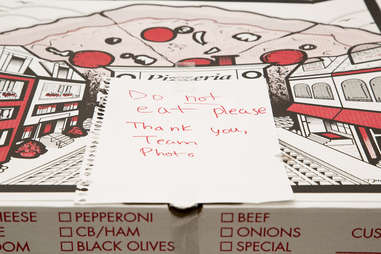 Pizzeria
Do not
eat please
Thank you,
Team
Photo
HEESE
PEPPERONI
BEEF
CB/HAM
ONIONS
CUS
OOM
BLACK OLIVES
SPECIAL